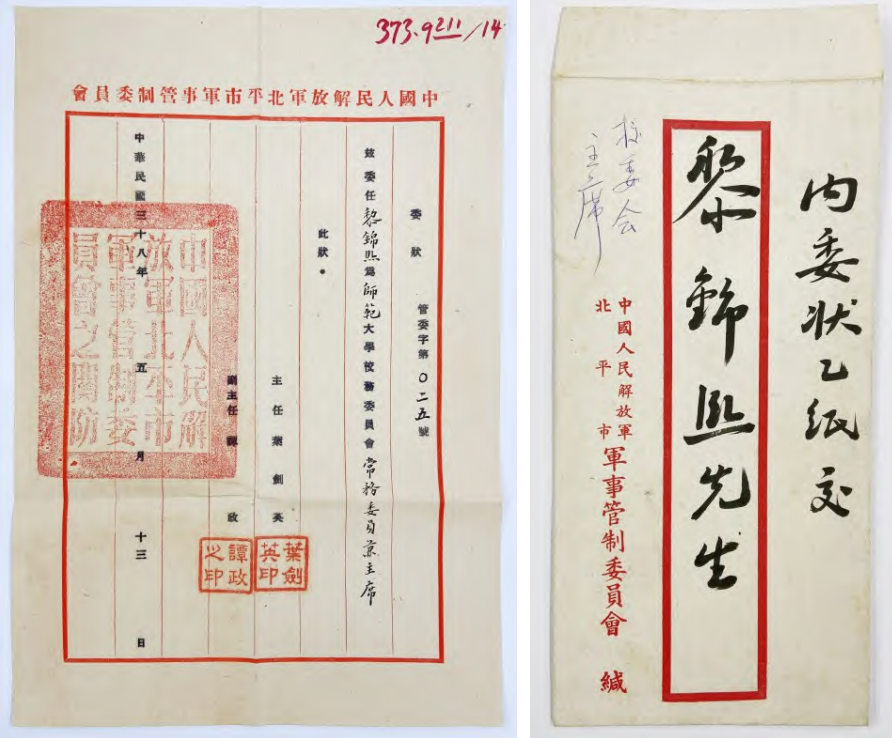 373.9211/14
中國人民解放軍北平市軍事管制委員會
委狀 管委字第〇二五號
茲委任黎錦熙爲師範大學校務委員會常務委員兼主席
此狀。
主任葉劍英
副主任譚政
中華民國三十八年五月十三日
中國人民解
放軍北平市
軍事管制委
員會之關防
葉劍
英印
譚政
之印
內委狀乙紙交
黎錦熙先生
校委会
主席
中國人民解放軍
北平市
軍事管制委員會 緘